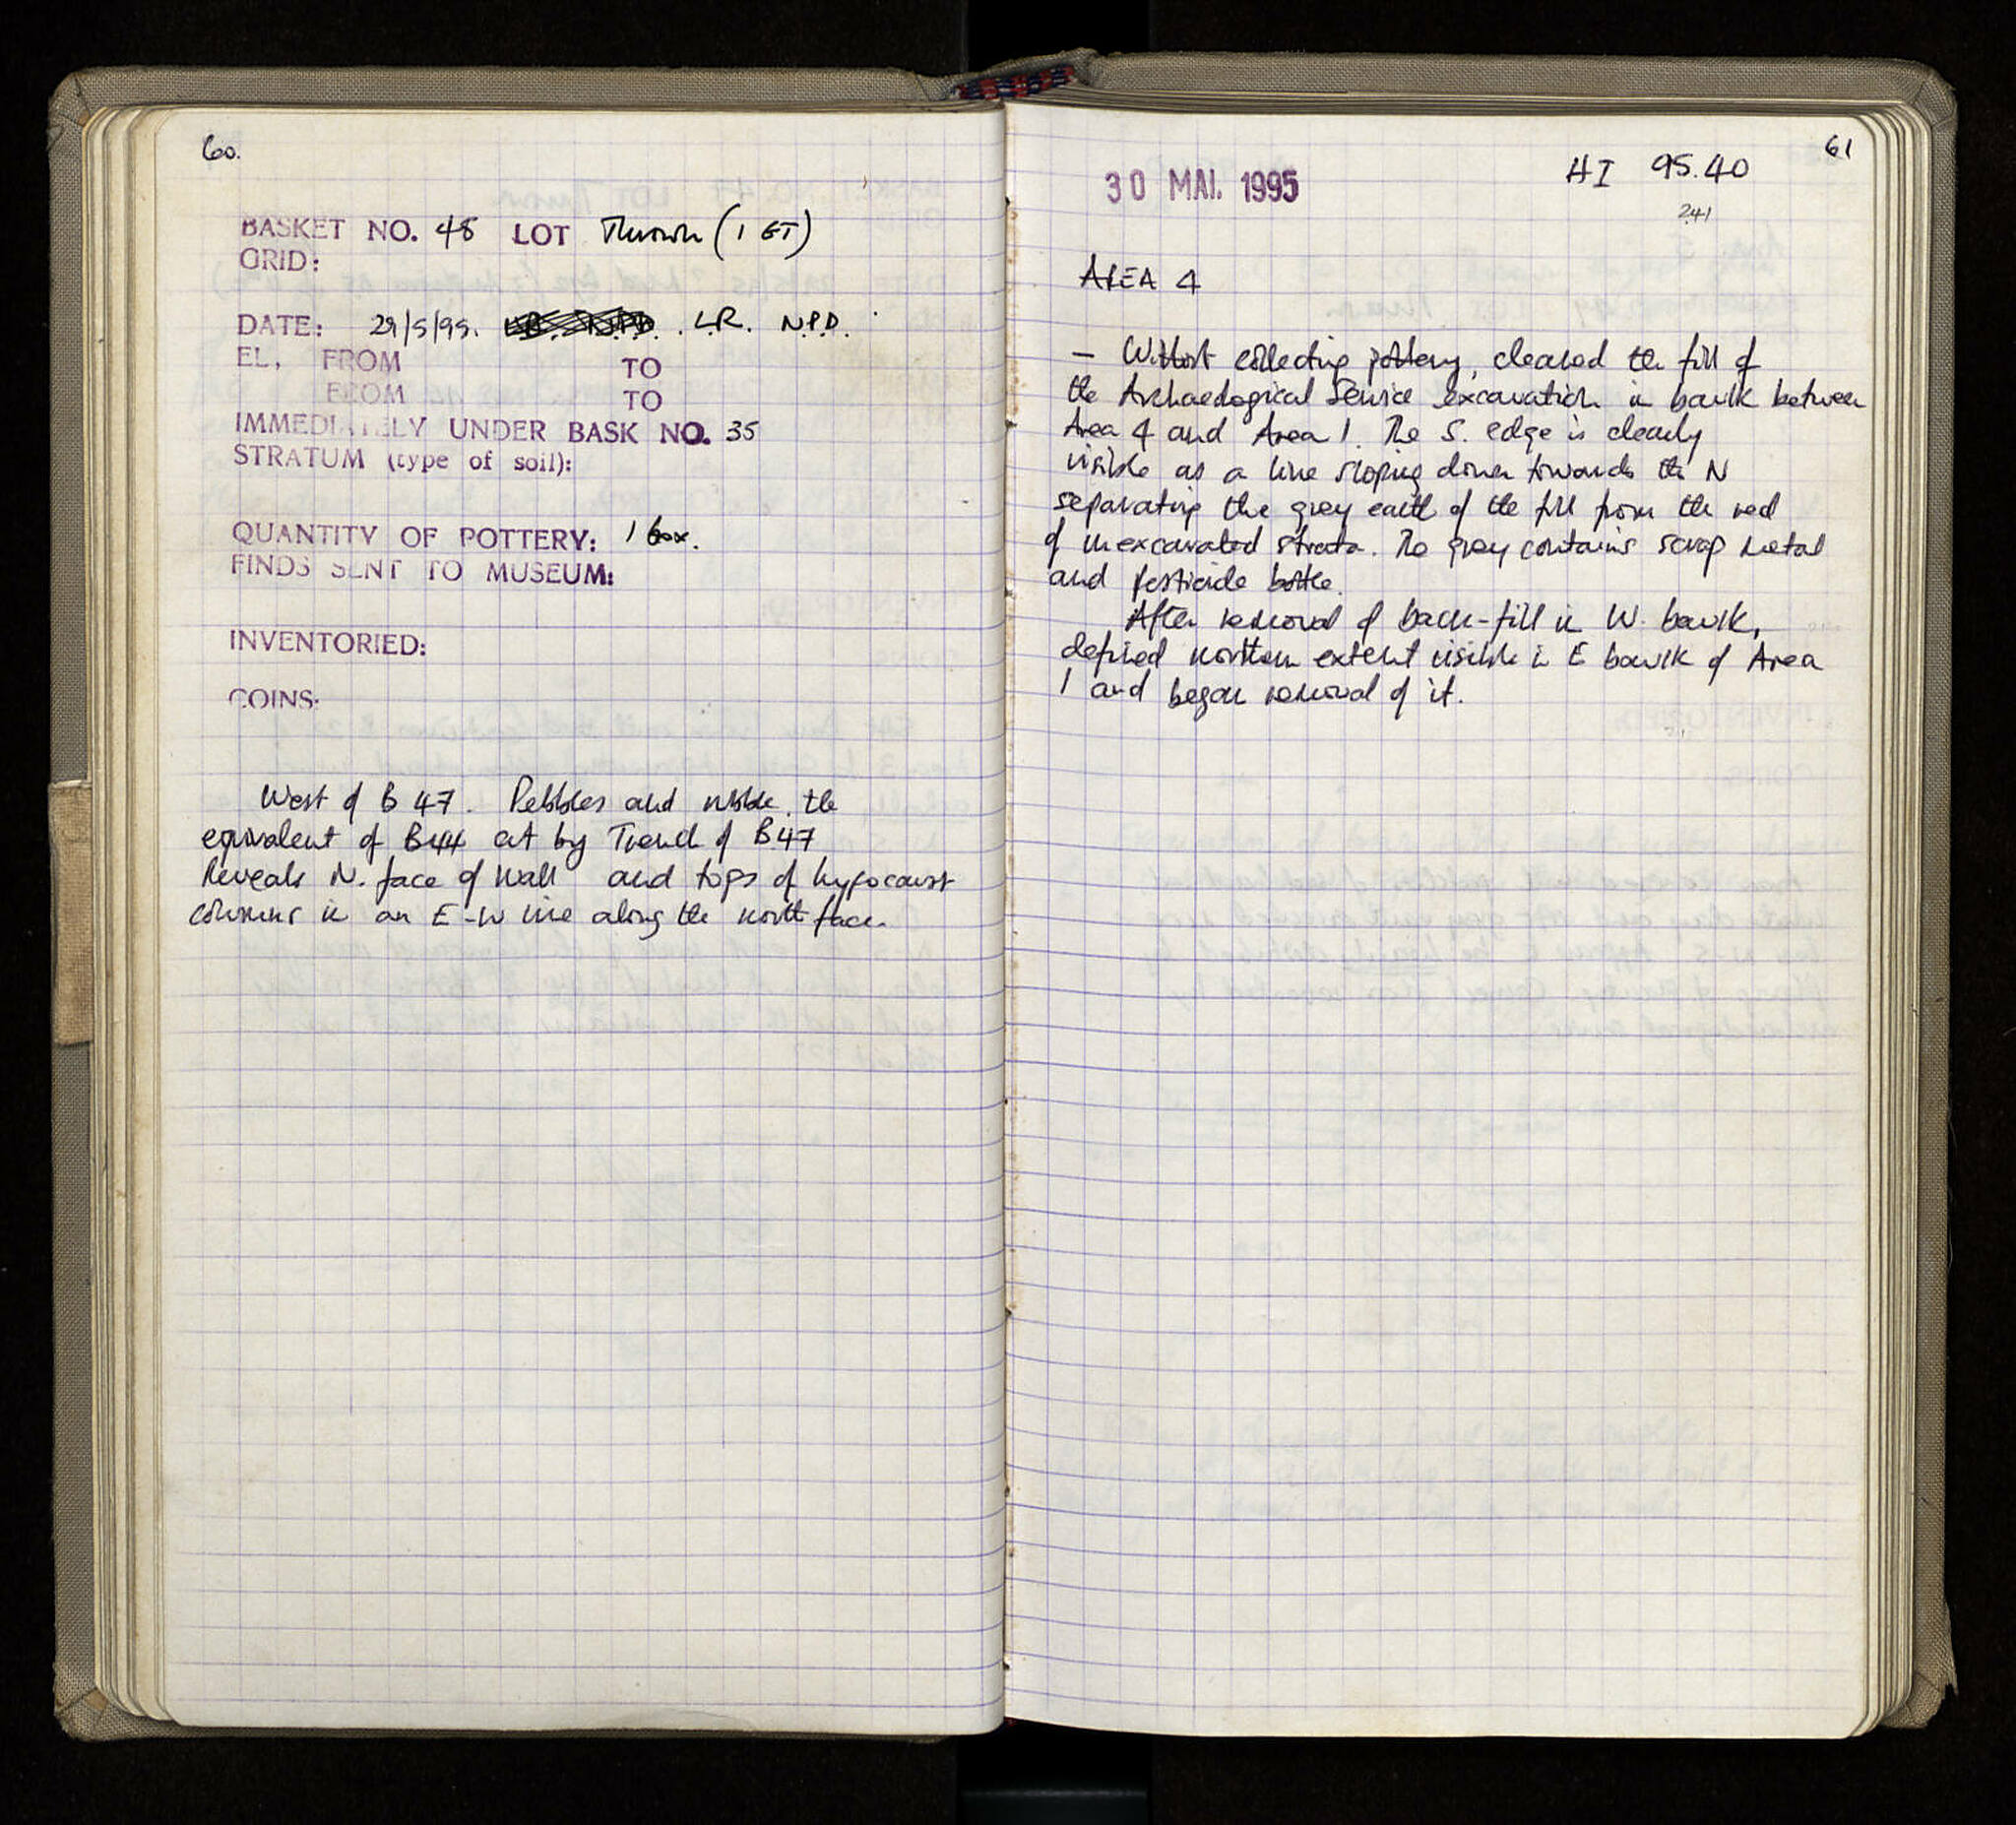 60.
BASKET NO. 48 LOT Thrown (1 ET)
GRID:
DATE: 29/5/95. L.R. N.P.D.
EL, FROM TO
FROM TO
IMMEDIATELY UNDER BASK NO. 35
STRATUM (type of soil):
QUANTITY OF POTTERY: 1 box.
FINDS SENT TO MUSEUM:
INVENTORIED:
COINS:
West of B 47. Pebbles and rubble, the
equivalent of B44 cut by Trench of B47
Reveals N. face of Wall and tops of hypocaust
columns in an E-W line along the north face.
61
30 MAI. 1995
HI 95.40
241
AREA 4
- Without collecting pottery, cleared the fill of
the Archaeological Service excavation in baulk between
Area 4 and Area 1. The S. edge is clearly
visible as a line sloping down towards the N
separating the grey earth of the fill from the red
of unexcavated strata. The grey contains scrap metal
and pesticide bottle.
After removal of back-fill in W. baulk,
defined northern extent visible in E baulk of Area
1 and began removal of it.